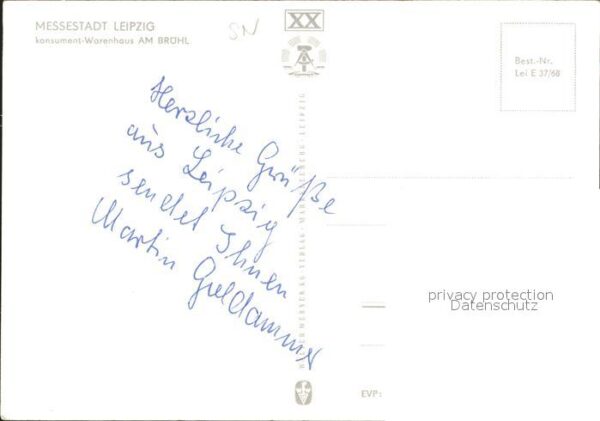 MESSESTADT LEIPZIG
konsument-Warenhaus AM BRÜHL
SN
XX
Best.-Nr.
Lei E 37/68
Herzliche Grüße
aus Leipzig
sendet Ihnen
Martin
privacy protection
Datenschutz
EVP: